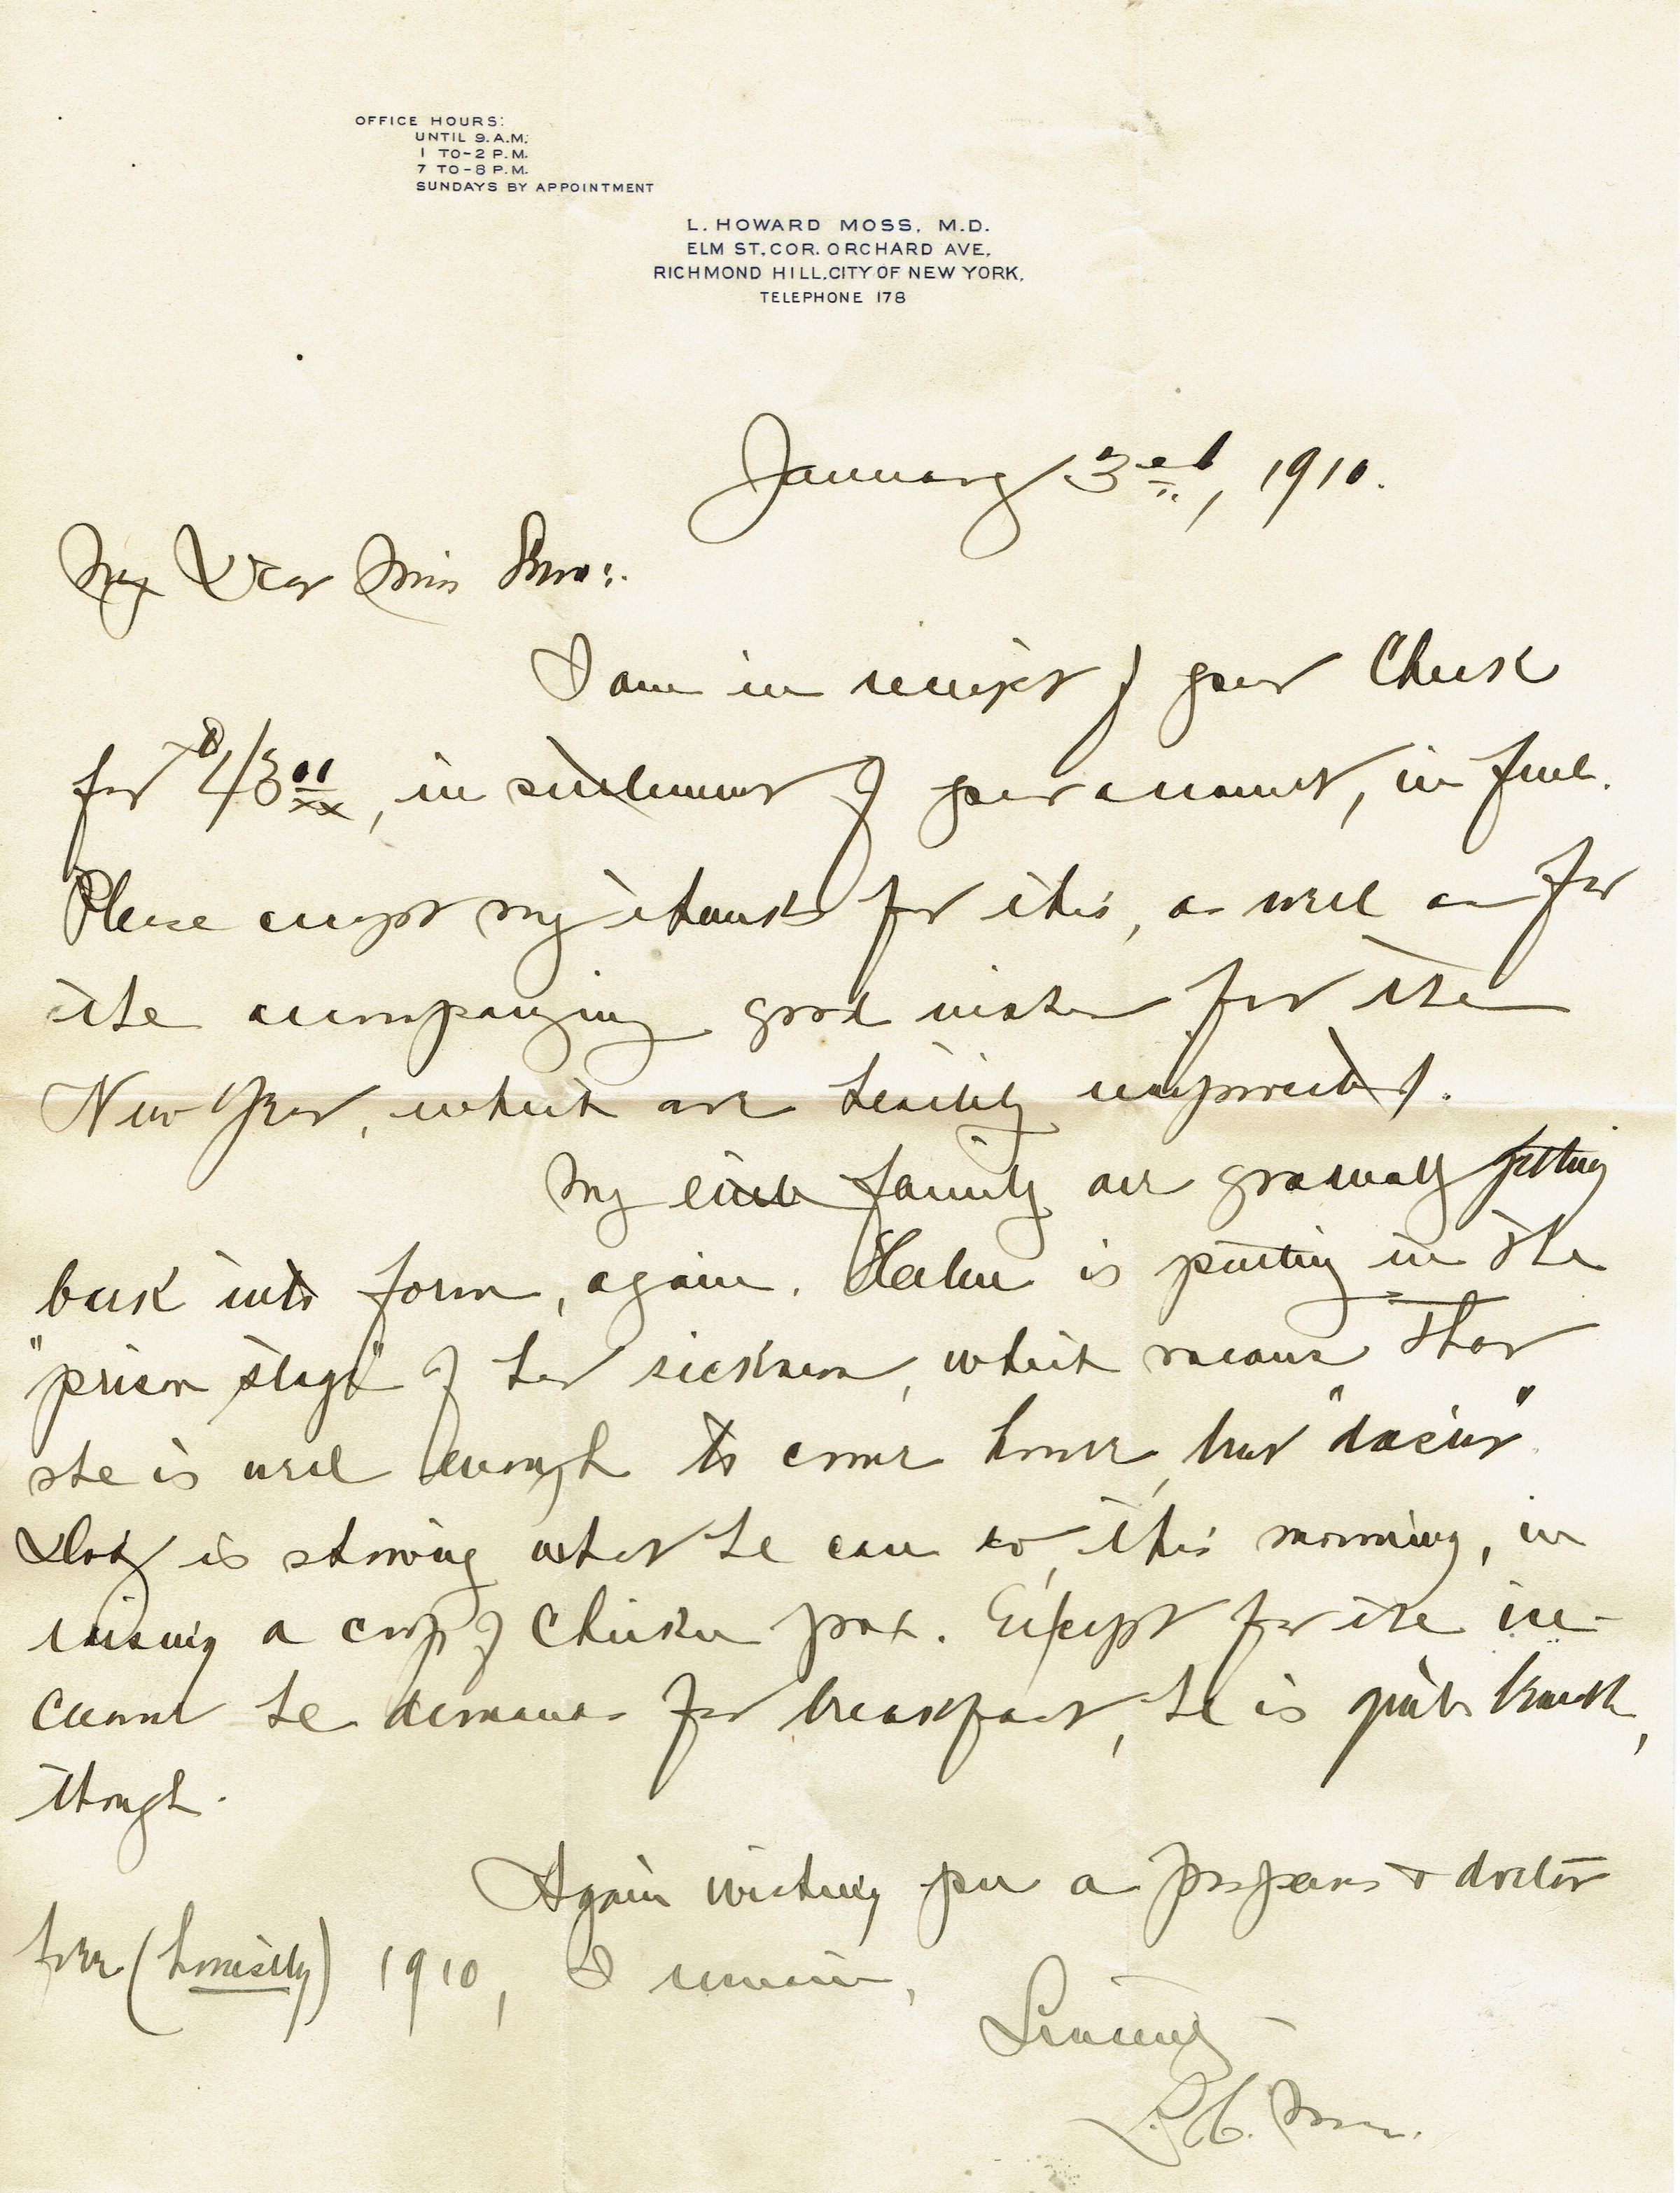 OFFICE HOURS:
UNTIL 9. A.M.
1 TO-2 P.M.
7 TO-8 P.M.
SUNDAYS BY APPOINTMENT
L. HOWARD MOSS, M.D.
ELM ST, COR. ORCHARD AVE,
RICHMOND HILL, CITY OF NEW YORK.
TELEPHONE 178
January 3rd, 1910.
My Dear Miss
I am in receipt of your Check
for $43 00/xx, in settlement of your account, in full.
Please accept my thanks for this, as well as for
the accompanying good wishes for the
New Year, which are heartily reciprocated.
My little family are gradually getting
back into form, again. Helen is putting in the
"prison stage" of her sickness, which means that
she is well enough to come home, but "dassent".
is showing what he can do, this morning, in
raising a crop of Chicken pox. Except for the in-
cessant he demands for breakfast, he is quite
though.
Again wishing you a prosperous & doctor
free (honestly) 1910, I remain,
Sincerely
L. H. Moss.